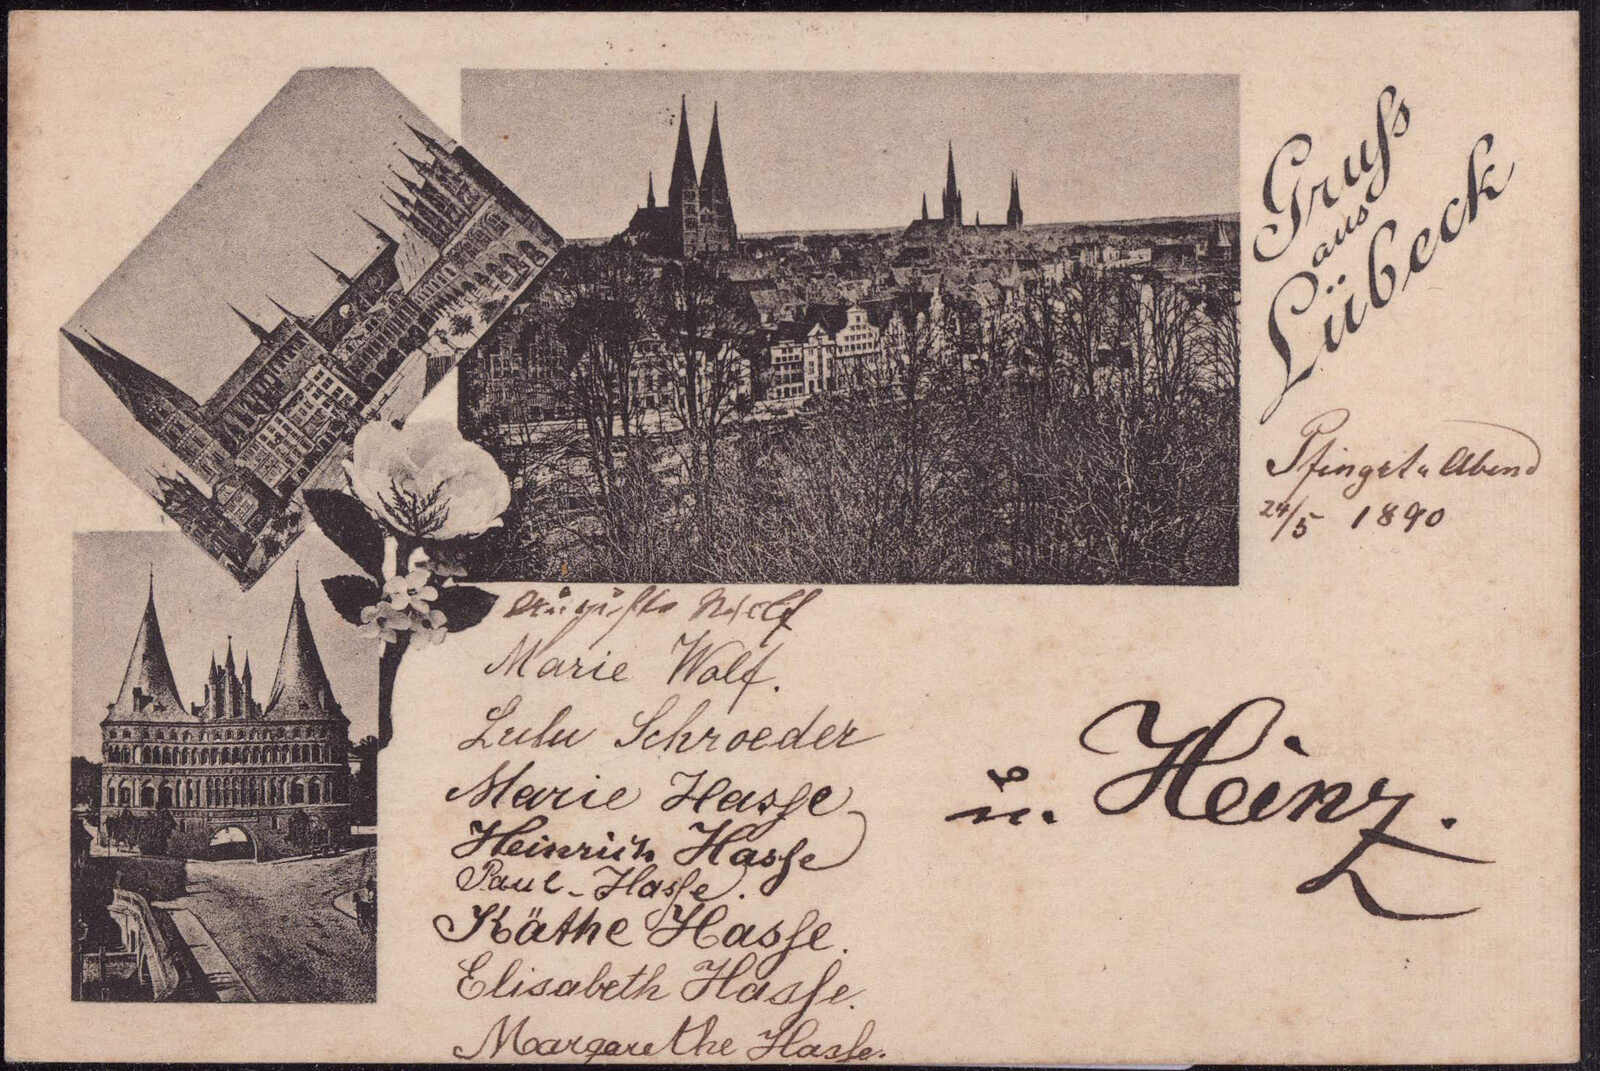 Gruſs
aus
Lübeck
Pfingst Abend
24/5 1890
Auguste Wolf
Marie Wolf.
Lulu Schroeder
Marie Hasse
Heinrich Hasse
Paul Hasse.
Käthe Hasse.
Elisabeth Hasse.
Margarethe Hasse.
u. Heinz.